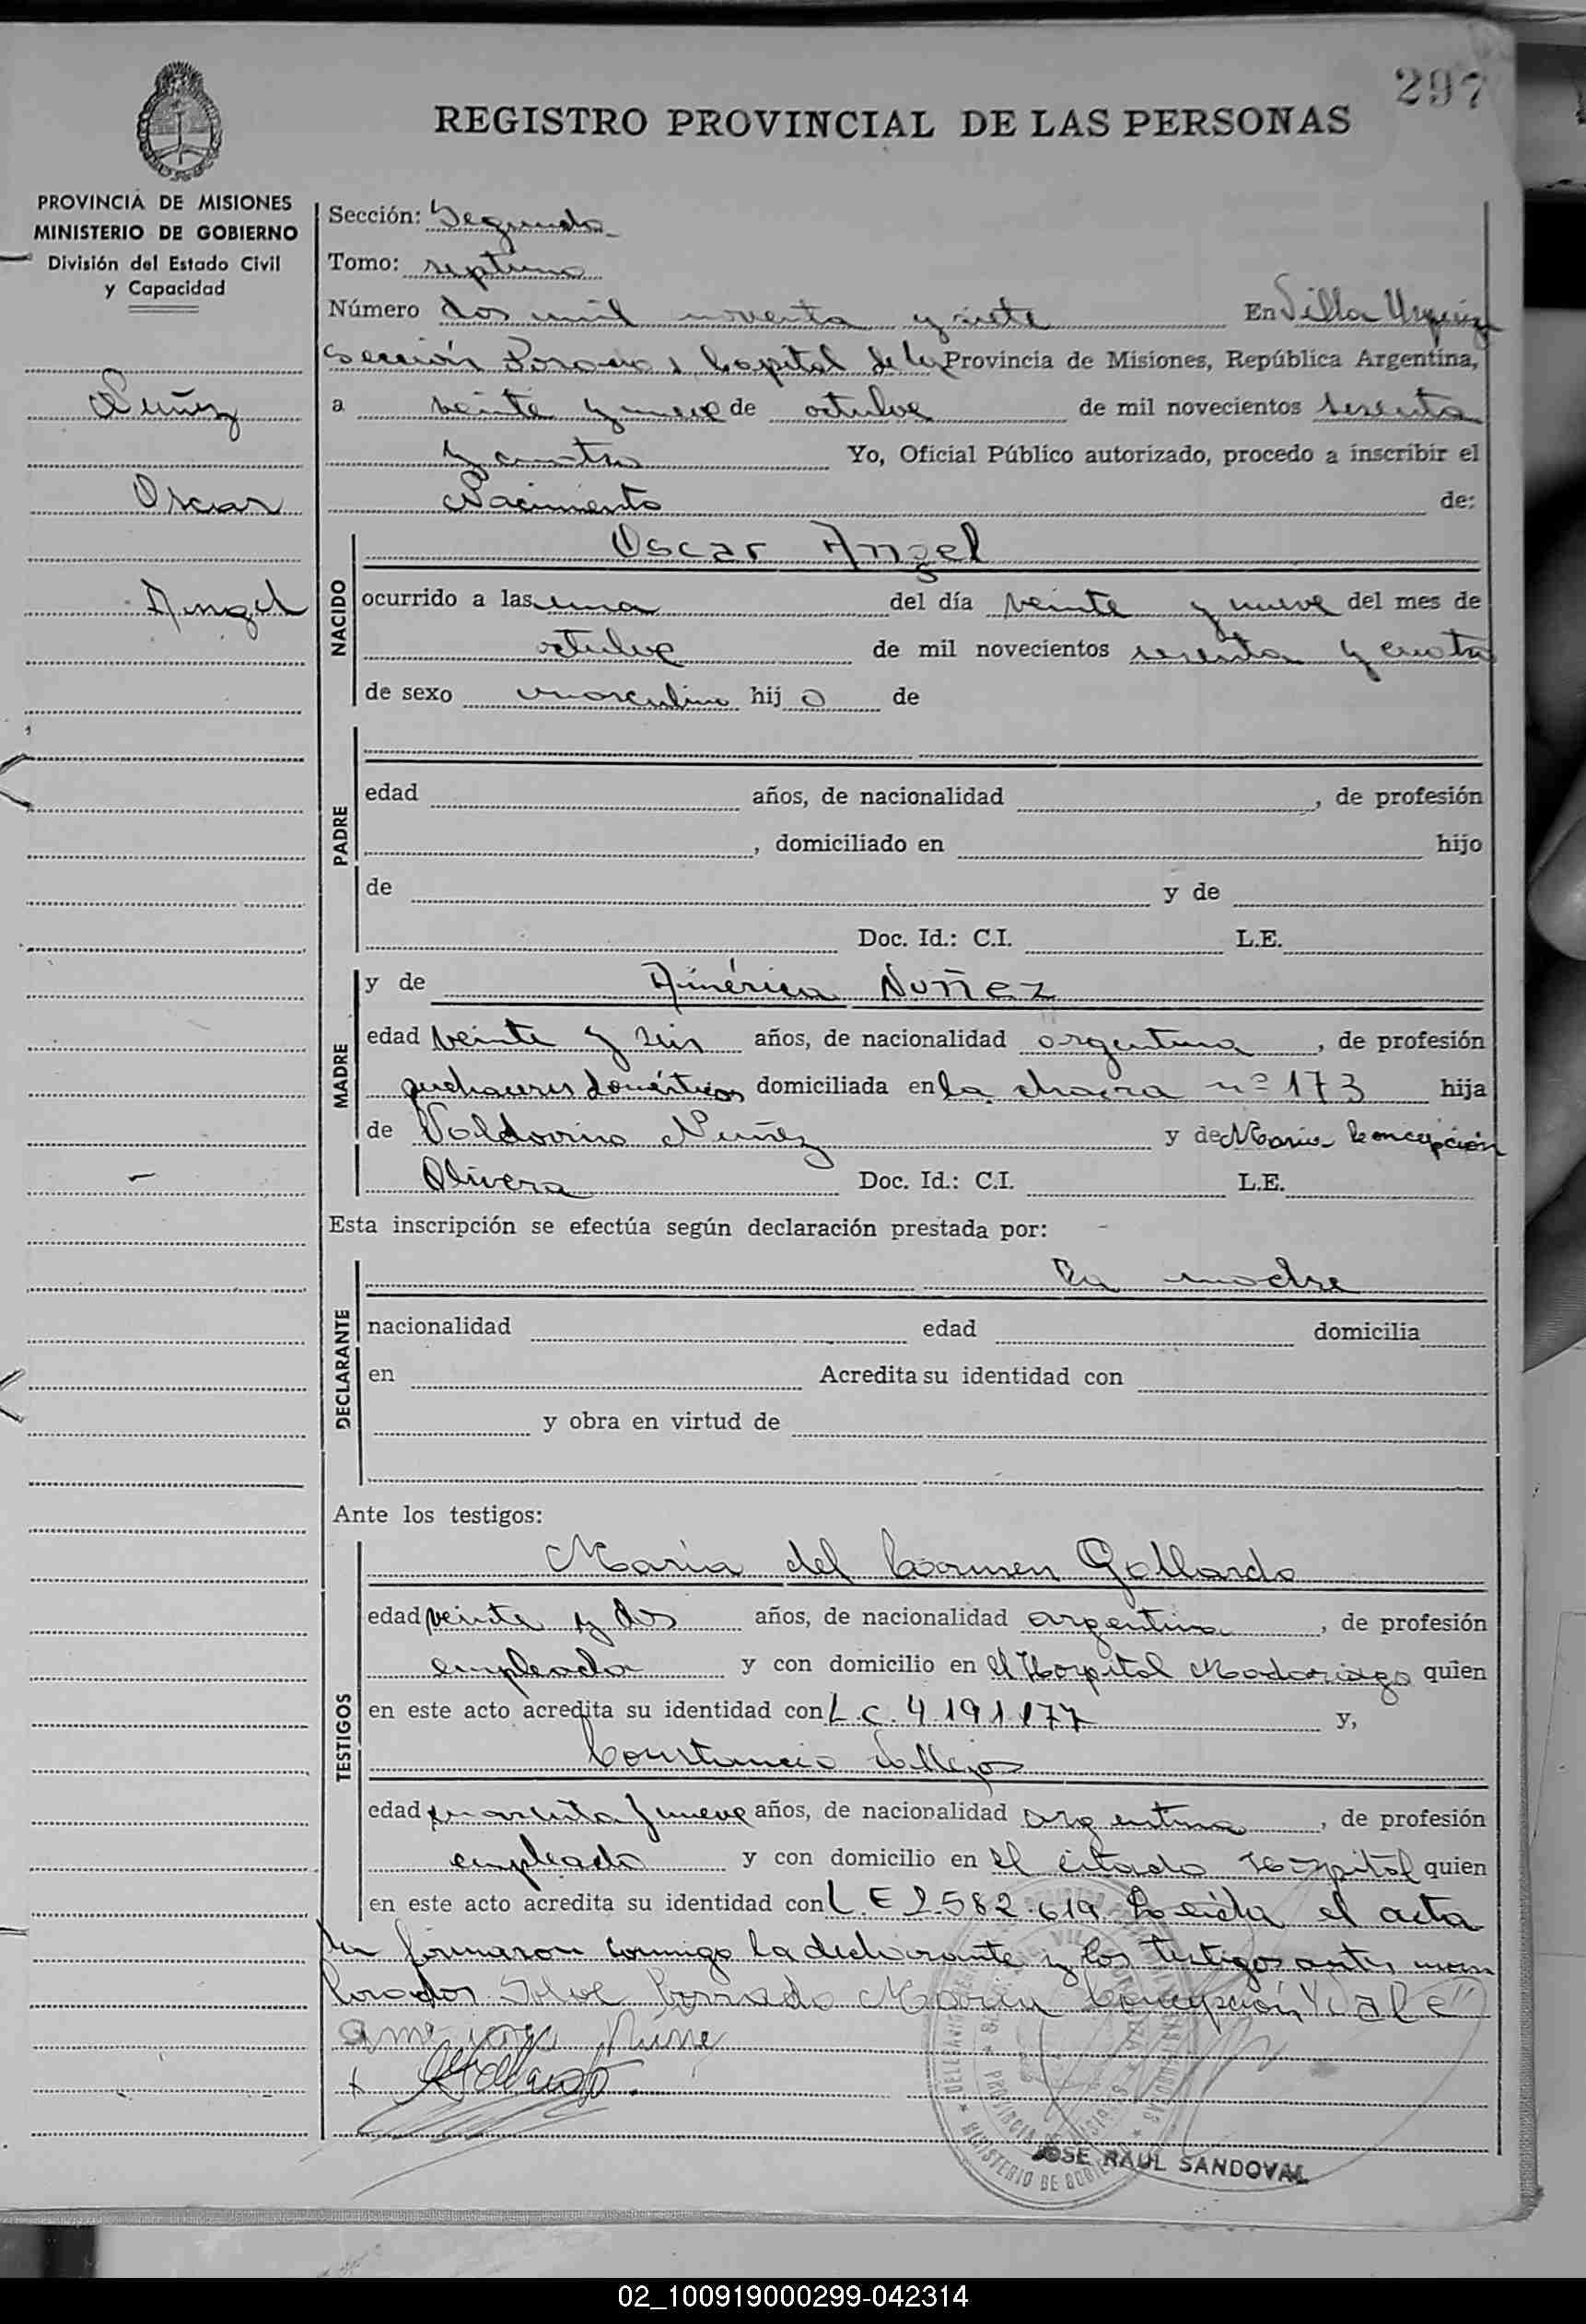 297
REGISTRO PROVINCIAL DE LAS PERSONAS
PROVINCIA DE MISIONES
MINISTERIO DE GOBIERNO
División del Estado Civil
y Capacidad
Nuñez
Oscar
Angel
Sección: Segunda
Tomo: septimo
Número dos mil noventa y siete En Villa Urquiza
Sección Posadas Capital de la Provincia de Misiones, República Argentina,
a veinte y nueve de octubre de mil novecientos sesenta
y cuatro Yo, Oficial Público autorizado, procedo a inscribir el
Nacimiento de:
NACIDO
Oscar Angel
ocurrido a las una del día veinte y nueve del mes de
octubre de mil novecientos sesenta y cuatro
de sexo masculino hijo de
PADRE
edad años, de nacionalidad , de profesión
, domiciliado en hijo
de y de
Doc. Id.: C.I. L.E.
MADRE
y de América Nuñez
edad veinte y seis años, de nacionalidad argentina , de profesión
quehaceres domésticos domiciliada en la chacra nº 173 hija
de Valdovino Nuñez y de Maria Concepción
Olivera Doc. Id.: C.I. L.E.
Esta inscripción se efectúa según declaración prestada por:
DECLARANTE
La madre
nacionalidad edad domicilia
en Acredita su identidad con
y obra en virtud de
Ante los testigos:
TESTIGOS
Maria del Carmen Gallardo
edad veinte y dos años, de nacionalidad argentina , de profesión
empleada y con domicilio en el Hospital Madariaga quien
en este acto acredita su identidad con L.C. 4.191.177 y,
Constancio Vallejos
edad cuarenta y nueve años, de nacionalidad argentina , de profesión
empleado y con domicilio en el citado Hospital quien
en este acto acredita su identidad con L.E 2.582.619 Leída el acta
la firmaron conmigo la declarante y los testigos antes men
Sobre Borrado Maria Concepción, Vale"
JOSE RAUL SANDOVAL
02_100919000299-042314